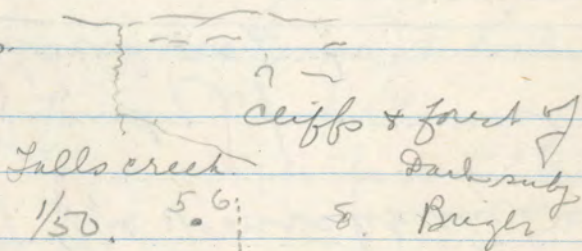 cliffs & forest of
Falls creek. Dark
1/50. 5.6. 8. Bright